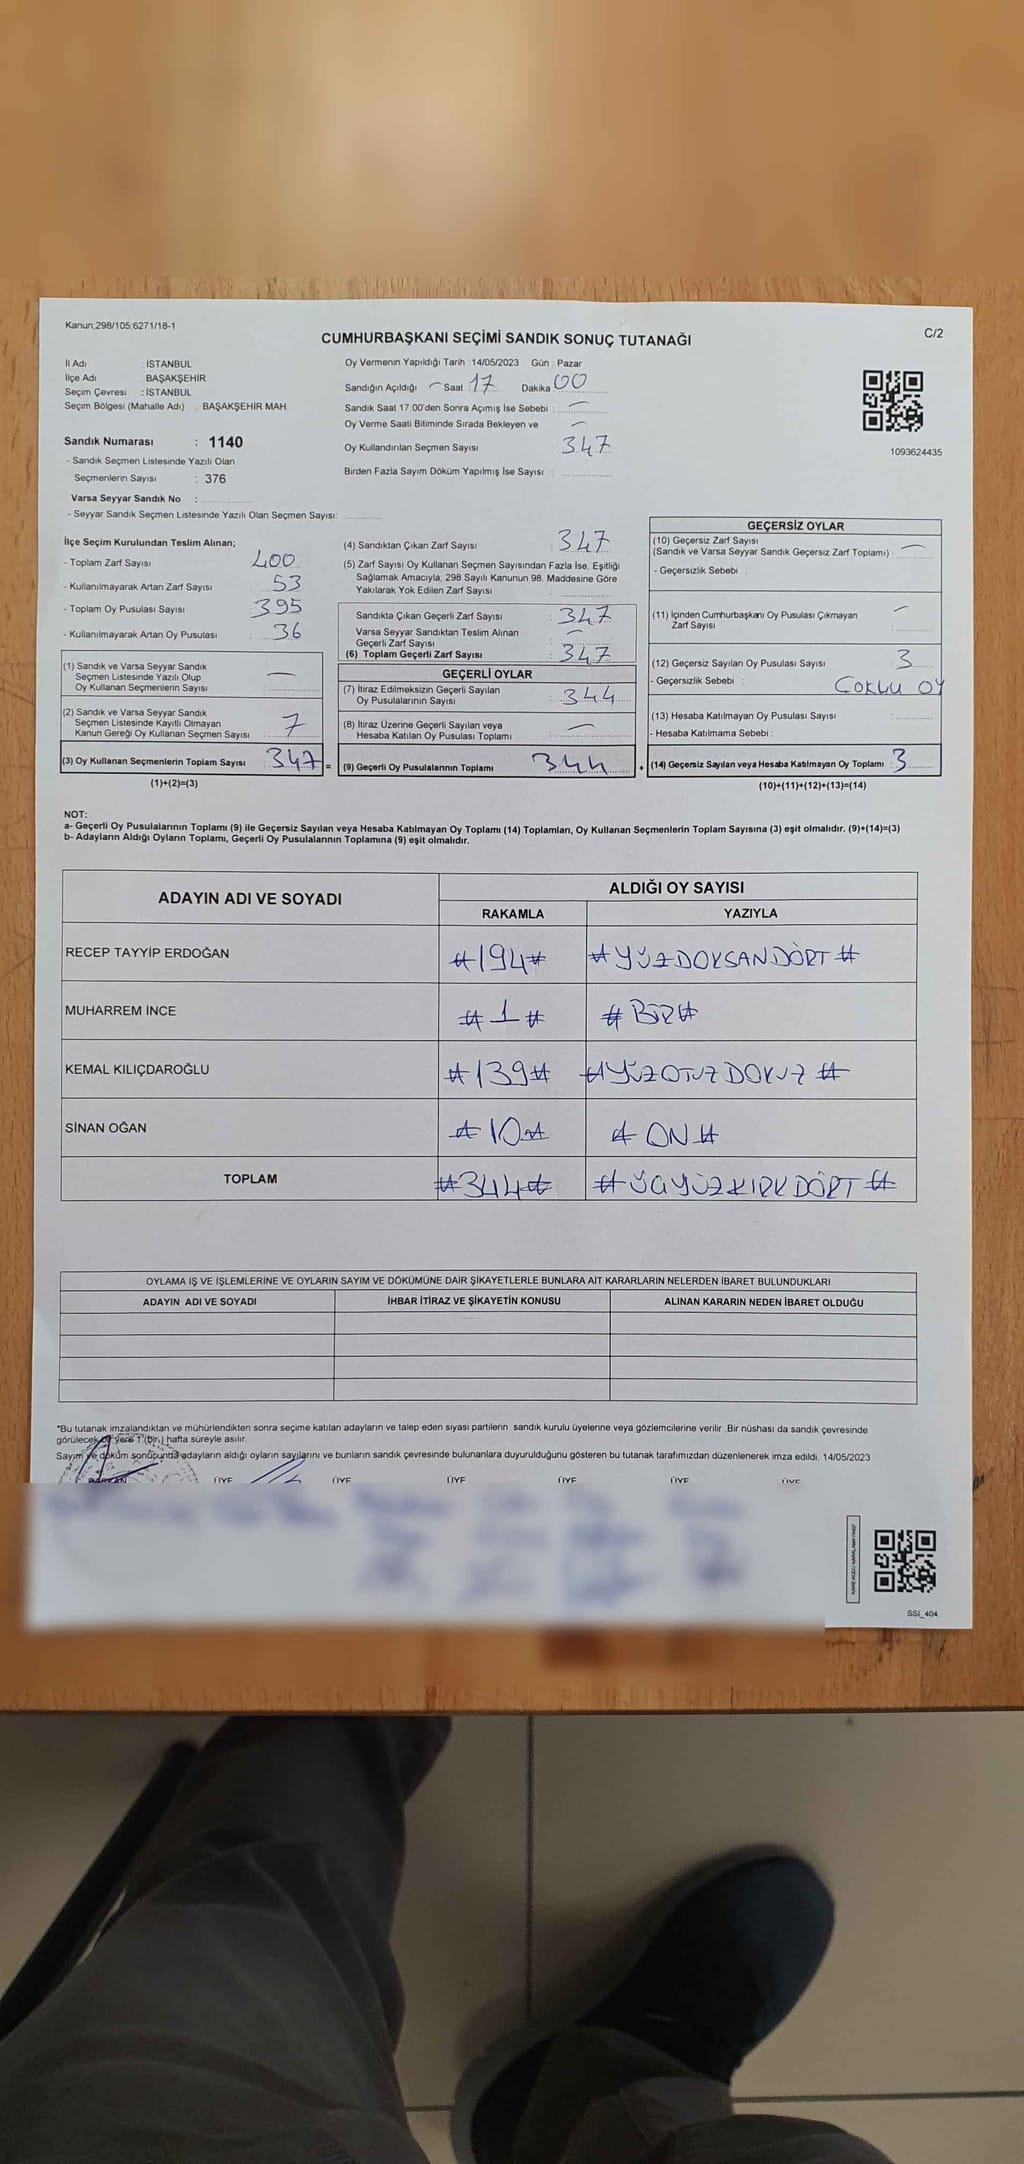 Kanun;298/105;6271/18-1
C/2
CUMHURBAŞKANI SEÇİMİ SANDIK SONUÇ TUTANAĞI
İl Adı : İSTANBUL
İlçe Adı : BAŞAKŞEHİR
Seçim Çevresi : İSTANBUL
Seçim Bölgesi (Mahalle Adı) : BAŞAKŞEHİR MAH.
Sandık Numarası : 1140
- Sandık Seçmen Listesinde Yazılı Olan
Seçmenlerin Sayısı : 376
Varsa Seyyar Sandık No :
- Seyyar Sandık Seçmen Listesinde Yazılı Olan Seçmen Sayısı:
Oy Vermenin Yapıldığı Tarih : 14/05/2023 Gün : Pazar
Sandığın Açıldığı – Saat : 17 Dakika 00
Sandık Saat 17:00'den Sonra Açımış İse Sebebi : —
Oy Verme Saati Bitiminde Sırada Bekleyen ve —
Oy Kullandırılan Seçmen Sayısı : 347
Birden Fazla Sayım Döküm Yapılmış İse Sayısı :
1093624435
İlçe Seçim Kurulundan Teslim Alınan;
- Toplam Zarf Sayısı 400
- Kullanılmayarak Artan Zarf Sayısı : 53
- Toplam Oy Pusulası Sayısı : 395
- Kullanılmayarak Artan Oy Pusulası : 36
(1) Sandık ve Varsa Seyyar Sandık
Seçmen Listesinde Yazılı Olup
Oy Kullanan Seçmenlerin Sayısı : —
(2) Sandık ve Varsa Seyyar Sandık
Seçmen Listesinde Kayıtlı Olmayan
Kanun Gereği Oy Kullanan Seçmen Sayısı : 7
(3) Oy Kullanan Seçmenlerin Toplam Sayısı : 347 =
(1)+(2)=(3)
(4) Sandıktan Çıkan Zarf Sayısı : 347
(5) Zarf Sayısı Oy Kullanan Seçmen Sayısından Fazla İse, Eşitliği
Sağlamak Amacıyla, 298 Sayılı Kanunun 98. Maddesine Göre
Yakılarak Yok Edilen Zarf Sayısı :
Sandıkta Çıkan Geçerli Zarf Sayısı : 347
Varsa Seyyar Sandıktan Teslim Alınan
Geçerli Zarf Sayısı : —
(6) Toplam Geçerli Zarf Sayısı : 347
GEÇERLİ OYLAR
(7) İtiraz Edilmeksizin Geçerli Sayılan
Oy Pusulalarının Sayısı : 344
(8) İtiraz Üzerine Geçerli Sayılan veya
Hesaba Katılan Oy Pusulası Toplamı : —
(9) Geçerli Oy Pusulalarının Toplamı : 344 +
GEÇERSİZ OYLAR
(10) Geçersiz Zarf Sayısı
(Sandık ve Varsa Seyyar Sandık Geçersiz Zarf Toplamı) : —
- Geçersizlik Sebebi :
(11) İçinden Cumhurbaşkanı Oy Pusulası Çıkmayan
Zarf Sayısı : —
(12) Geçersiz Sayılan Oy Pusulası Sayısı : 3
- Geçersizlik Sebebi : ÇOKLU OY
(13) Hesaba Katılmayan Oy Pusulası Sayısı :
- Hesaba Katılmama Sebebi :
(14) Geçersiz Sayılan veya Hesaba Katılmayan Oy Toplamı : 3
(10)+(11)+(12)+(13)=(14)
NOT:
a- Geçerli Oy Pusulalarının Toplamı (9) ile Geçersiz Sayılan veya Hesaba Katılmayan Oy Toplamı (14) Toplamları, Oy Kullanan Seçmenlerin Toplam Sayısına (3) eşit olmalıdır. (9)+(14)=(3)
b- Adayların Aldığı Oyların Toplamı, Geçerli Oy Pusulalarının Toplamına (9) eşit olmalıdır.
ADAYIN ADI VE SOYADI ALDIĞI OY SAYISI
RAKAMLA YAZIYLA
RECEP TAYYİP ERDOĞAN #194# #YÜZDOKSANDÖRT#
MUHARREM İNCE #1# #BİR#
KEMAL KILIÇDAROĞLU #139# #YÜZOTUZDOKUZ#
SİNAN OĞAN #10# #ON#
TOPLAM #344# #ÜÇYÜZKIRKDÖRT#
OYLAMA İŞ VE İŞLEMLERİNE VE OYLARIN SAYIM VE DÖKÜMÜNE DAİR ŞİKAYETLERLE BUNLARA AİT KARARLARIN NELERDEN İBARET BULUNDUKLARI
ADAYIN ADI VE SOYADI İHBAR İTİRAZ VE ŞİKAYETİN KONUSU ALINAN KARARIN NEDEN İBARET OLDUĞU
*Bu tutanak imzalandıktan ve mühürlendikten sonra seçime katılan adayların ve talep eden siyasi partilerin sandık kurulu üyelerine veya gözlemcilerine verilir. Bir nüshası da sandık çevresinde
görülecek bir yere 1 (bir) hafta süreyle asılır.
Sayım ve döküm sonucunda adayların aldığı oyların sayılarını ve bunların sandık çevresinde bulunanlara duyurulduğunu gösteren bu tutanak tarafımızdan düzenlenerek imza edildi. 14/05/2023
BAŞKAN ÜYE ÜYE ÜYE ÜYE ÜYE ÜYE
SSI_404